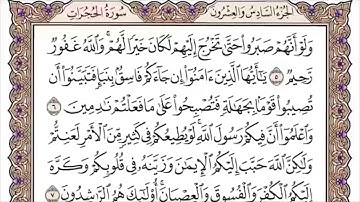 الجزء السادس والعشرون سورة الحجرات
وَلَوْ أَنَّهُمْ صَبَرُوا۟ حَتَّىٰ تَخْرُجَ إِلَيْهِمْ لَكَانَ خَيْرًا لَّهُمْ ۚ وَٱللَّهُ غَفُورٌ
رَّحِيمٌ ٥ يَـٰٓأَيُّهَا ٱلَّذِينَ ءَامَنُوٓا۟ إِن جَآءَكُمْ فَاسِقٌۢ بِنَبَإٍ فَتَبَيَّنُوٓا۟ أَن
تُصِيبُوا۟ قَوْمًۢا بِجَهَـٰلَةٍ فَتُصْبِحُوا۟ عَلَىٰ مَا فَعَلْتُمْ نَـٰدِمِينَ ٦
وَٱعْلَمُوٓا۟ أَنَّ فِيكُمْ رَسُولَ ٱللَّهِ ۚ لَوْ يُطِيعُكُمْ فِى كَثِيرٍ مِّنَ ٱلْأَمْرِ لَعَنِتُّمْ
وَلَـٰكِنَّ ٱللَّهَ حَبَّبَ إِلَيْكُمُ ٱلْإِيمَـٰنَ وَزَيَّنَهُۥ فِى قُلُوبِكُمْ وَكَرَّهَ
إِلَيْكُمُ ٱلْكُفْرَ وَٱلْفُسُوقَ وَٱلْعِصْيَانَ ۚ أُو۟لَـٰٓئِكَ هُمُ ٱلرَّٰشِدُونَ ٧